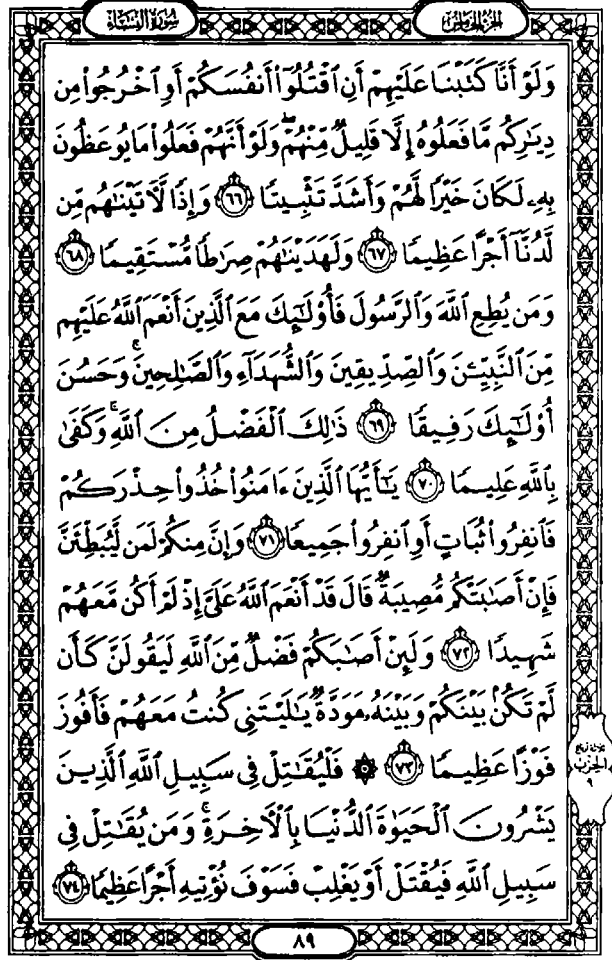 الجزء الخامس
سورة النساء
وَلَوْ أَنَّا كَتَبْنَا عَلَيْهِمْ أَنِ ٱقْتُلُوٓا۟ أَنفُسَكُمْ أَوِ ٱخْرُجُوا۟ مِن
دِيَٰرِكُم مَّا فَعَلُوهُ إِلَّا قَلِيلٌ مِّنْهُمْ ۖ وَلَوْ أَنَّهُمْ فَعَلُوا۟ مَا يُوعَظُونَ
بِهِۦ لَكَانَ خَيْرًا لَّهُمْ وَأَشَدَّ تَثْبِيتًا ﴿٦٦﴾ وَإِذًا لَّءَاتَيْنَٰهُم مِّن
لَّدُنَّآ أَجْرًا عَظِيمًا ﴿٦٧﴾ وَلَهَدَيْنَٰهُمْ صِرَٰطًا مُّسْتَقِيمًا ﴿٦٨﴾
وَمَن يُطِعِ ٱللَّهَ وَٱلرَّسُولَ فَأُو۟لَٰٓئِكَ مَعَ ٱلَّذِينَ أَنْعَمَ ٱللَّهُ عَلَيْهِم
مِّنَ ٱلنَّبِيِّـۧنَ وَٱلصِّدِّيقِينَ وَٱلشُّهَدَآءِ وَٱلصَّٰلِحِينَ ۚ وَحَسُنَ
أُو۟لَٰٓئِكَ رَفِيقًا ﴿٦٩﴾ ذَٰلِكَ ٱلْفَضْلُ مِنَ ٱللَّهِ ۚ وَكَفَىٰ
بِٱللَّهِ عَلِيمًا ﴿٧٠﴾ يَٰٓأَيُّهَا ٱلَّذِينَ ءَامَنُوا۟ خُذُوا۟ حِذْرَكُمْ
فَٱنفِرُوا۟ ثُبَاتٍ أَوِ ٱنفِرُوا۟ جَمِيعًا ﴿٧١﴾ وَإِنَّ مِنكُمْ لَمَن لَّيُبَطِّئَنَّ
فَإِنْ أَصَٰبَتْكُم مُّصِيبَةٌ قَالَ قَدْ أَنْعَمَ ٱللَّهُ عَلَىَّ إِذْ لَمْ أَكُن مَّعَهُمْ
شَهِيدًا ﴿٧٢﴾ وَلَئِنْ أَصَٰبَكُمْ فَضْلٌ مِّنَ ٱللَّهِ لَيَقُولَنَّ كَأَن
لَّمْ تَكُنۢ بَيْنَكُمْ وَبَيْنَهُۥ مَوَدَّةٌ يَٰلَيْتَنِى كُنتُ مَعَهُمْ فَأَفُوزَ
فَوْزًا عَظِيمًا ﴿٧٣﴾ ۞ فَلْيُقَٰتِلْ فِى سَبِيلِ ٱللَّهِ ٱلَّذِينَ
يَشْرُونَ ٱلْحَيَوٰةَ ٱلدُّنْيَا بِٱلْءَاخِرَةِ ۚ وَمَن يُقَٰتِلْ فِى
سَبِيلِ ٱللَّهِ فَيُقْتَلْ أَوْ يَغْلِبْ فَسَوْفَ نُؤْتِيهِ أَجْرًا عَظِيمًا ﴿٧٤﴾
ثلاثة أرباع
الحزب
٩
٨٩